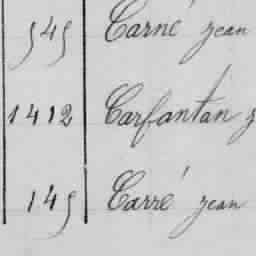 545 Carné jean
1412 Carfantan
145 Carré jean